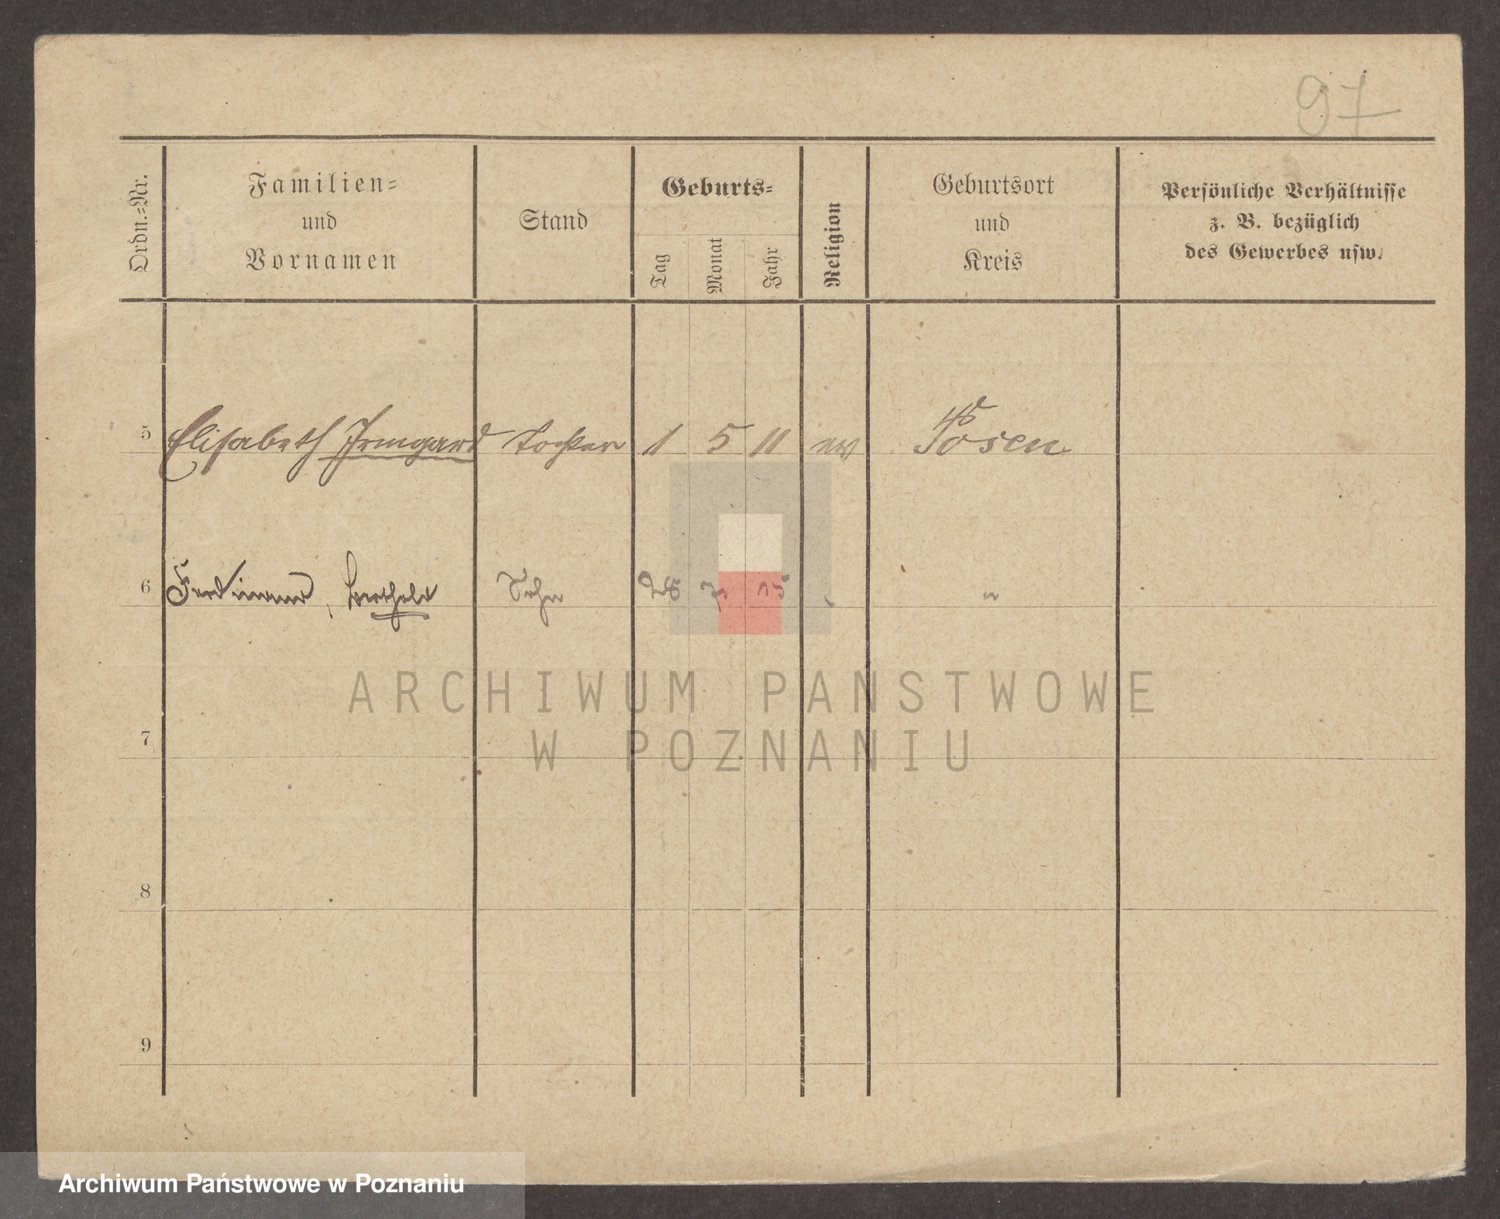 97
Ordn.-Nr.
Familien-
und
Vornamen
Stand
Geburts-
Tag
Monat
Jahr
Religion
Geburtsort
und
Kreis
Persönliche Verhältnisse
z. B. bezüglich
des Gewerbes usw.
5 Elisabeth Irmgard Tochter 1 5 11 ev Posen
6 Ferdinand, Berthold Sohn 28 7 15 " "
ARCHIWUM PAŃSTWOWE
W POZNANIU
7
8
9
Archiwum Państwowe w Poznaniu